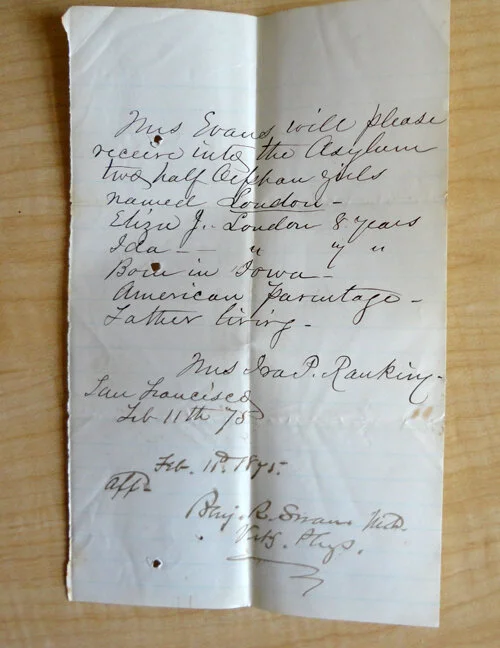 Mrs Evans will please
receive into the Asylum
two half Orphan girls
named London -
Eliza J. London 8 years
Ida — " 7 "
Born in Iowa -
American Parentage -
Father living -
Mrs Ira P. Rankin -
San Francisco
Feb 11th 75
Feb. 11th 1875.
Benj. R. Swan M.D.
Phys.